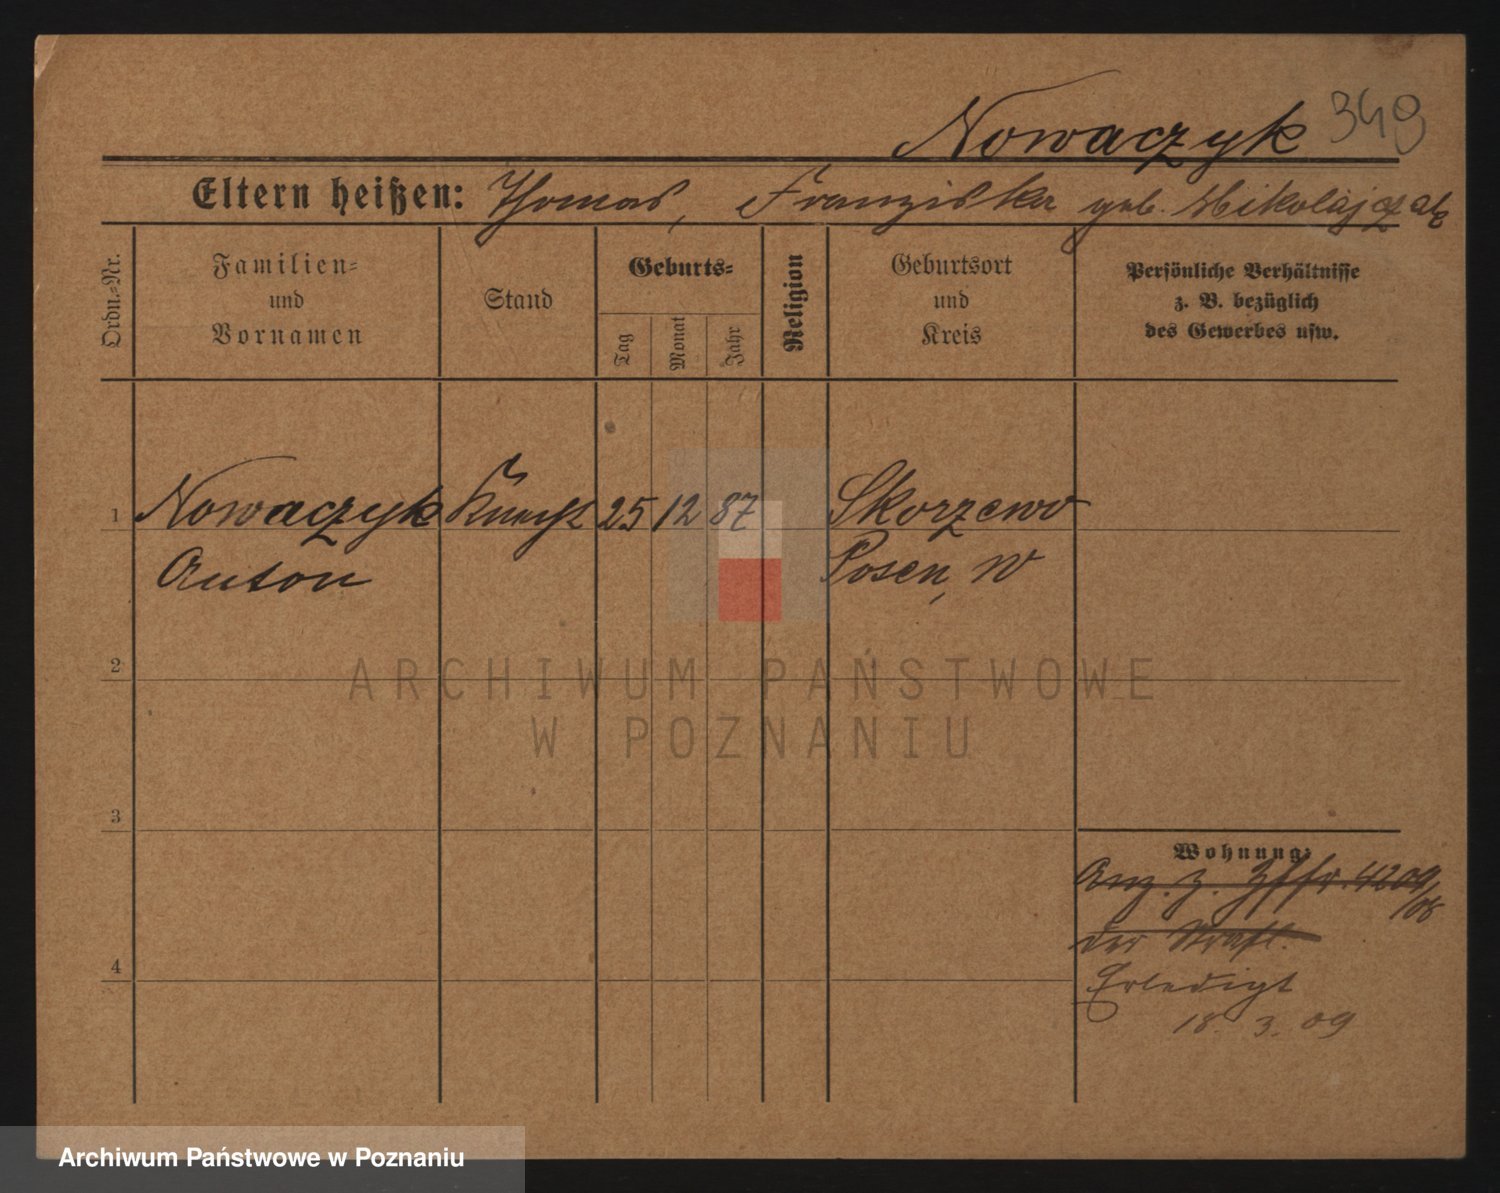 Nowaczyk 349
Eltern heißen: Thomas, Franziska geb. Mikolajczak
Ordn.-Nr.
Familien-
und
Vornamen
Stand
Geburts-
Tag
Monat
Jahr
Religion
Geburtsort
und
Kreis
Persönliche Verhältnisse
z. B. bezüglich
des Gewerbes usw.
1 Nowaczyk Knecht 25 12 87 Skorzewo
Anton Posen, W
2
ARCHIWUM PAŃSTWOWE
W POZNANIU
3
Wohnung:
Anz. z. 4209/08
der
4
Erledigt
18. 3. 09
Archiwum Państwowe w Poznaniu